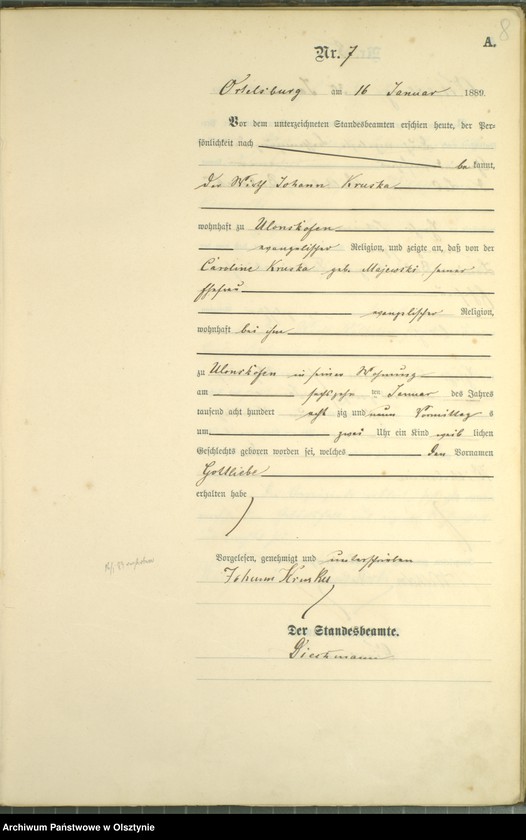 8
A.
Nr. 7
Ortelsburg am 16 Januar 1889.
Vor dem unterzeichneten Standesbeamten erschien heute, der Per-
sönlichkeit nach
be kannt,
der Wirth Johann Kruska
wohnhaft zu Ulonskofen
evangelischer Religion, und zeigte an, daß von der
Caroline Kruska geb. Majewski seiner
Ehefrau
evangelischer Religion,
wohnhaft bei ihm
zu Ulonskofen in seiner Wohnung
am sechszehn ten Januar des Jahres
tausend acht hundert acht zig und neun Vormittag s
um zwei Uhr ein Kind weib lichen
Geschlechts geboren worden sei, welches den Vornamen
Gottliebe
erhalten habe
Vorgelesen, genehmigt und unterschrieben
Johann Kruska
Der Standesbeamte.
Archiwum Państwowe w Olsztynie